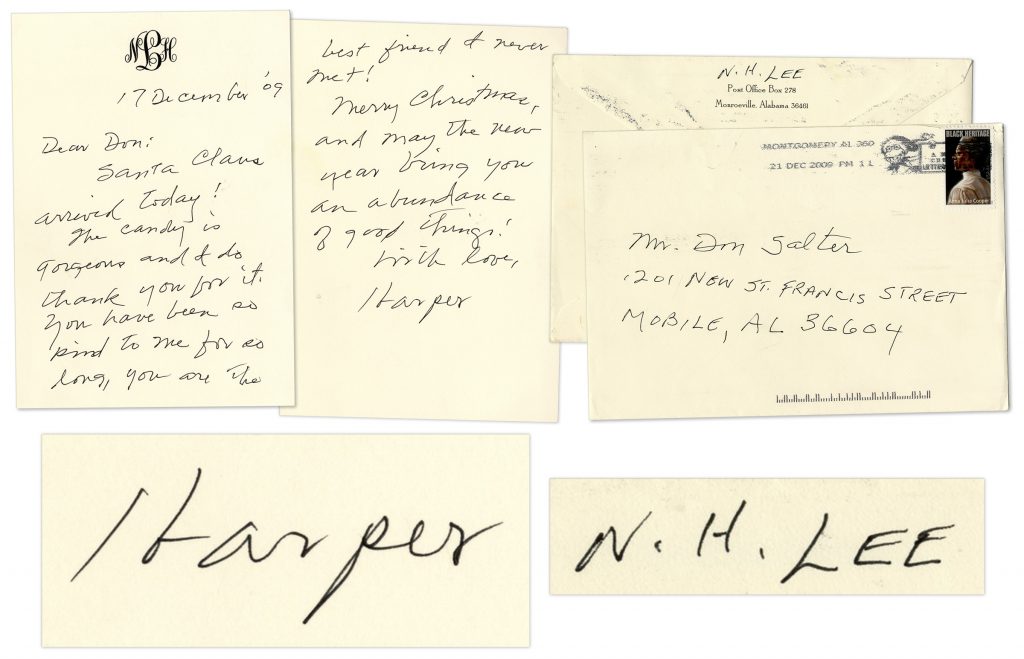 NLH
17 December '09
Dear Don:
Santa Claus
arrived today!
The candy is
gorgeous and I do
thank you for it.
You have been so
kind to me for so
long, you are the
best friend I never
met!
Merry Christmas,
and may the new
year bring you
an abundance
of good things!
With love,
Harper
N. H. LEE
Post Office Box 278
Monroeville, Alabama 36461
MONTGOMERY AL 360
21 DEC 2009 PM 1 L
BLACK HERITAGE
Anna Julia Cooper
Mr. Don Salter
1201 NEW ST. FRANCIS STREET
MOBILE, AL 36604
Harper
N. H. LEE